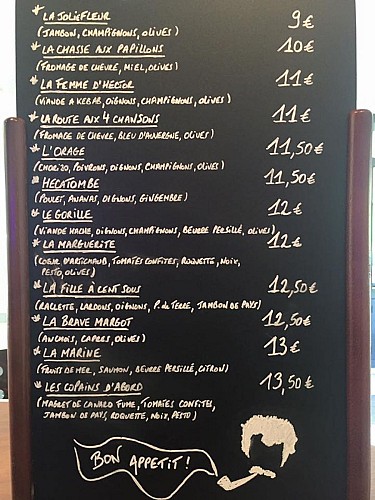 * LA JOLIE FLEUR 9€
(JAMBON, CHAMPIGNONS, OLIVES)
* LA CHASSE AUX PAPILLONS 10€
(FROMAGE DE CHÈVRE, MIEL, OLIVES)
* LA FEMME D'HECTOR 11€
(VIANDE A KEBAB, OIGNONS, CHAMPIGNONS, OLIVES)
* LA ROUTE AUX 4 CHANSONS 11€
(FROMAGE DE CHEVRE, BLEU D'AUVERGNE, OLIVES)
* L'ORAGE 11,50€
(CHORIZO, POIVRONS, OIGNONS, CHAMPIGNONS, OLIVES)
* HECATOMBE 11,50€
(POULET, ANANAS, OIGNONS, GINGEMBRE)
* LE GORILLE 12€
(VIANDE HACHE, OIGNONS, CHAMPIGNONS, BEURRE PERSILLÉ, OLIVES)
* LA MARGUERITE 12€
(COEUR D'ARTICHAUD, TOMATES CONFITES, ROQUETTE, NOIX,
PESTO, OLIVES)
* LA FILLE À CENT SOUS 12,50€
(RACLETTE, LARDONS, OIGNONS, P. de TERRE, JAMBON DE PAYS)
* LA BRAVE MARGOT 12,50€
(ANCHOIS, CAPERS, OLIVES)
* LA MARINE 13€
(FRUITS DE MER, SAUMON, BEURRE PERSILLÉ, CITRON)
* LES COPAINS D'ABORD 13,50€
(MAGRET DE CANARD FUME, TOMATES CONFITES,
JAMBON DE PAYS, ROQUETTE, NOIX, PESTO)
BON APPETIT!